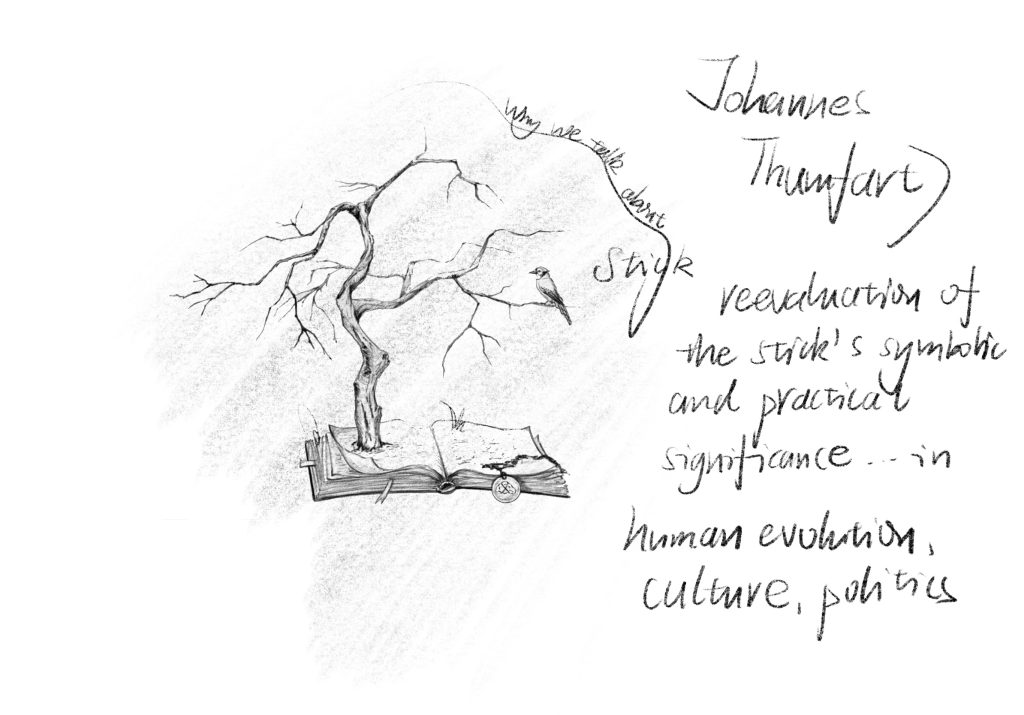 Why we talk about
Stick
Johannes
Thumfart)
reevaluation of
the stick's symbolic
and practical
significance ... in
human evolution,
culture, politics